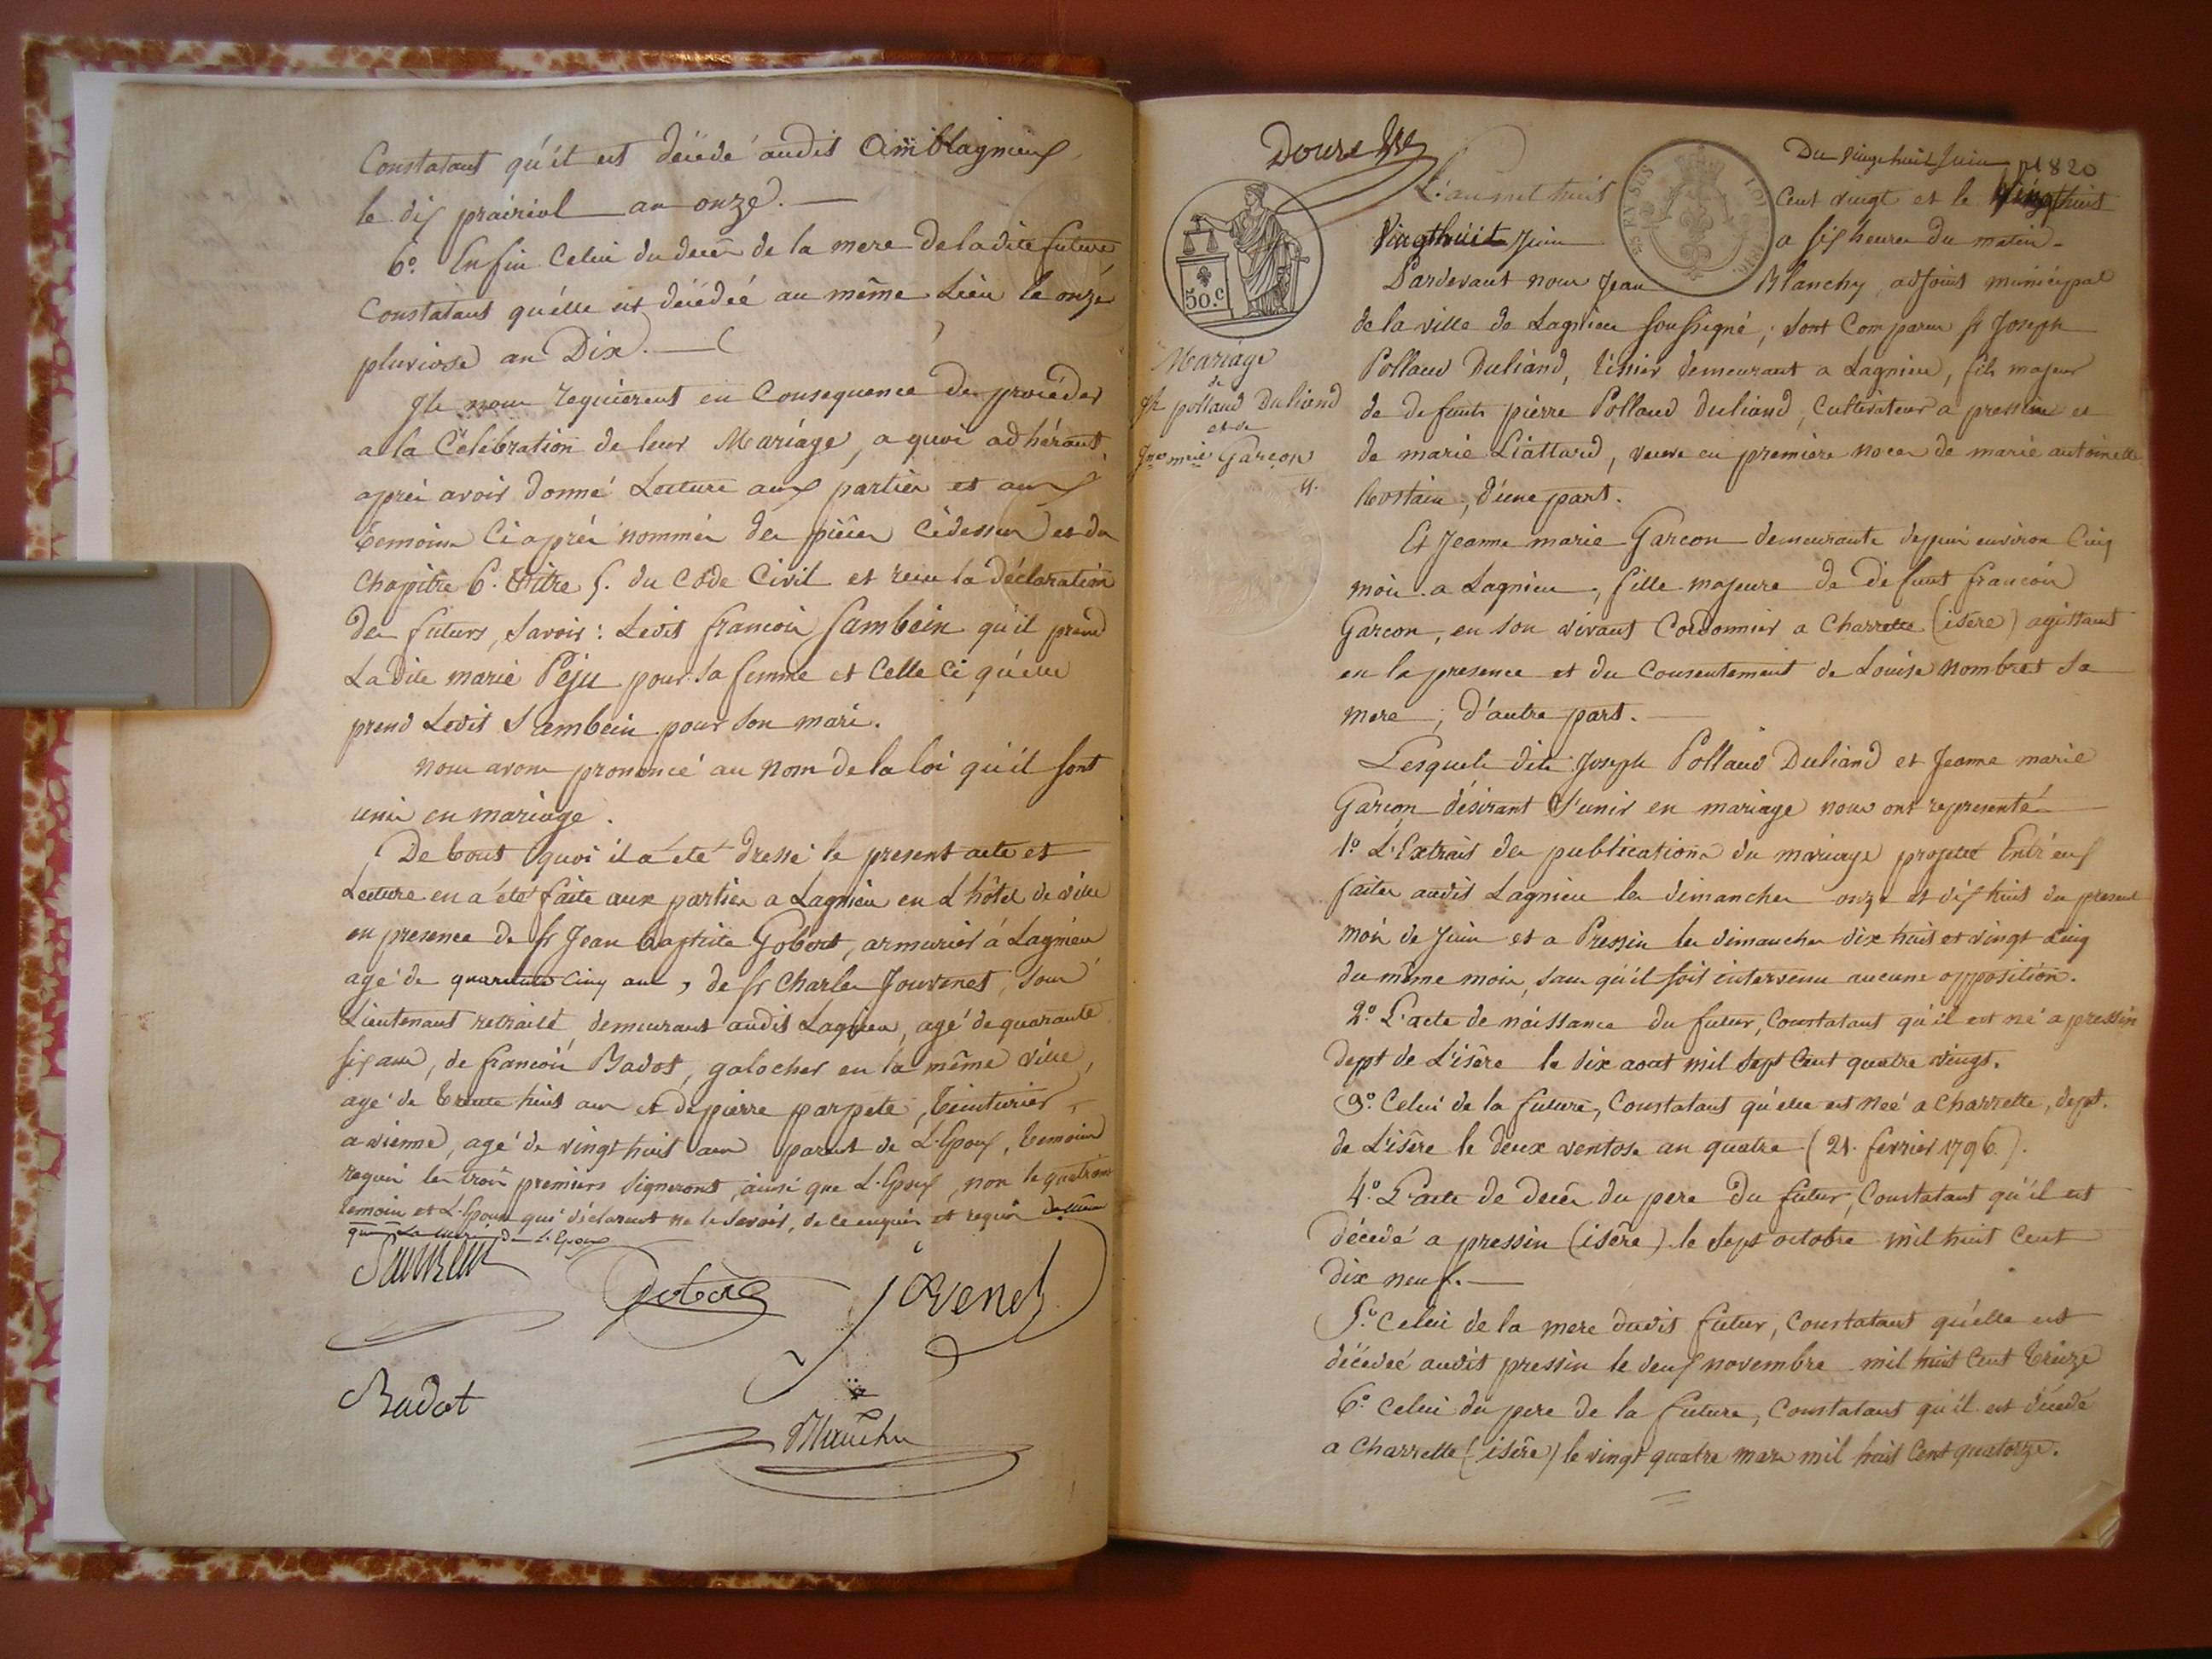 Constatant qu'il est décédé audit Amblagnieux
le dix prairial an onze.
6.° Enfin Celui du décès de la mere de ladite future
Constatant qu'elle est décédée au même Lieu le onze
pluviose an Dix.
Ils nous requierent en Consequence de proceder
a la Célébration de leur Mariage, a quoi adhérant,
après avoir donné Lecture aux parties et aux
temoins Ci après nommés des pièces Cidessus et du
Chapitre 6. titre 5. du Code Civil et reçu la déclaration
des futurs, Savoir: Ledit francois Sambein qu'il prend
Ladite marie Peju pour sa femme et Celle Ci qu'elle
prend Ledit Sambein pour son mari.
nous avons prononcé au nom de la loi qu'il sont
unis en mariage.
De tout quoi il a été dressé le present acte et
Lecture en a été faite aux parties a Lagnieu en L'hôtel de ville
en presence de Sr Jean baptiste Gobert, armurier à Lagnieu
agé de quarante Cinq ans, de Sr Charles Jouvenet, Sous
Lieutenant retraité, demeurant audit Lagnieu, agé de quarante
six ans, de francois Badot, galocher en la même ville,
agé de trente huit ans et de pierre parpete, teinturier
a vienne, agé de vingt huit ans parent de L'Epoux, temoins
requis les trois premiers Signeront, ainsi que L'Epoux, non le quatrieme
temoin et L'Epouse qui déclarent ne le Savoir, de ce enquis et requis de même
que La mere de L'Epoux
Sambein
Gobert Jouvenet
Badot
Blanchy
Douze
Du vingt huit Juin 1820
L'an mil huit Cent vingt et le
Vingthuit Juin a six heures du matin
50.c
Pardevant nous Jean Blanchy, adjoint municipal
de la ville de Lagnieu Soussigné, Sont Comparus Sr Joseph
Mariage
de
Jh pollaud Duliand
et de
Jne mrie Garçon
Pollaud Duliand, tissier demeurant a Lagnieu, fils majeur
de defunts pierre Pollaud Duliand, Cultivateur a pressin et
de marie Liattard, veuve en premiere noces de marie antoinette
Rostain, d'une part.
Et Jeanne marie Garcon demeurante depuis environ Cinq
mois a Lagnieu, fille majeure de defunt francois
Garcon, en son vivant Cordonnier a Charrette (isère) agissant
en la presence et du Consentement de Louise Nombret Sa
mere; d'autre part.
Lesquels dits Joseph Pollaud Duliand et Jeanne marie
Garcon désirant S'unir en mariage nous ont representé
1.° L'Extrait des publications du mariage projetté Entr'eux
faites audit Lagnieu les dimanches onze et dix huit du present
mois de Juin et a Pressin les dimanches dix huit et vingt Cinq
du même mois, sans qu'il soit intervenu aucune opposition.
2.° L'acte de naissance du futur, Constatant qu'il est né a pressin
dept de L'isère le dix aout mil Sept Cent quatre vingt.
3.° Celui de la future, Constatant qu'elle est née a Charrette, dept.
de L'isère le deux ventose an quatre (21. fevrier 1796.).
4.° L'acte de decès du pere du futur, Constatant qu'il est
décedé a pressin (isère) le Sept octobre mil huit Cent
dix neuf.
5.° Celui de la mere dudit futur, Constatant qu'elle est
décedeé audit pressin le deux novembre mil huit Cent treize
6.° Celui du pere de la future, Constatant qu'il est décedé
a Charrette (isère) le vingt quatre mars mil huit Cent quatorze.